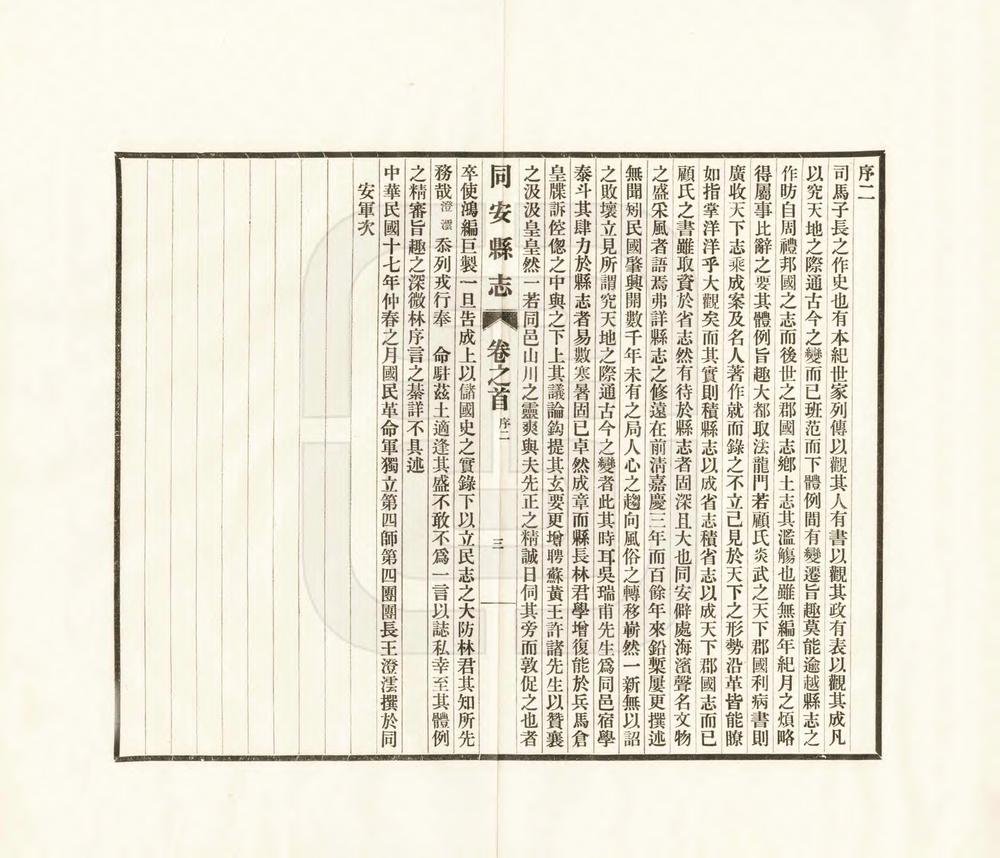 序二
司馬子長之作史也有本紀世家列傳以觀其人有書以觀其政有表以觀其成凡
以究天地之際通古今之變而已班范而下體例間有變遷旨趣莫能逾越縣志之
作昉自周禮邦國之志而後世之郡國志鄉土志其濫觴也雖無編年紀月之煩略
得屬事比辭之要其體例旨趣大都取法龍門若顧氏炎武之天下郡國利病書則
廣收天下志乘成案及名人著作就而錄之不立己見於天下之形勢沿革皆能瞭
如指掌洋洋乎大觀矣而其實則積縣志以成省志積省志以成天下郡國志而已
顧氏之書雖取資於省志然有待於縣志者固深且大也同安僻處海濱聲名文物
之盛采風者語焉弗詳縣志之修遠在前淸嘉慶三年而百餘年來鉛槧屢更撰述
無聞矧民國肇興開數千年未有之局人心之趨向風俗之轉移嶄然一新無以詔
之敗壞立見所謂究天地之際通古今之變者此其時耳吳瑞甫先生爲同邑宿學
泰斗其肆力於縣志者易數寒暑固已卓然成章而縣長林君學增復能於兵馬倉
皇牒訴倥傯之中與之下上其議論鈎提其玄要更增聘蘇黃王許諸先生以贊襄
之汲汲皇皇然一若同邑山川之靈爽與夫先正之精誠日伺其旁而敦促之也者
同安縣志 卷之首 序二 三
卒使鴻編巨製一旦告成上以儲國史之實錄下以立民志之大防林君其知所先
務哉澄澐忝列戎行奉 命駐茲土適逢其盛不敢不爲一言以誌私幸至其體例
之精審旨趣之深微林序言之綦詳不具述
中華民國十七年仲春之月國民革命軍獨立第四師第四團團長王澄澐撰於同
安軍次